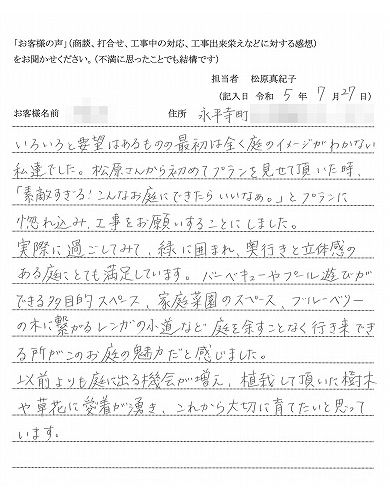 「お客様の声」(商談、打合せ、工事中の対応、工事出来栄えなどに対する感想)
をお聞かせください。(不満に思ったことでも結構です)
担当者　松原真紀子
(記入日　令和　5年　7月27日)
お客様名前　　住所　永平寺町
いろいろと要望はあるものの最初は全く庭のイメージがわかない
私達でした。松原さんから初めてプランを見せて頂いた時、
「素敵すぎる！こんなお庭にできたらいいなぁ。」とプランに
惚れ込み、工事をお願いすることにしました。
実際に過ごしてみて、緑に囲まれ、奥行きと立体感の
ある庭にとても満足しています。バーベキューやプール遊びが
できる多目的スペース、家庭菜園のスペース、ブルーベリー
の木に繋がるレンガの小道など庭を余すことなく行き来でき
る所がこのお庭の魅力だと感じました。
以前よりも庭に出る機会が増え、植栽して頂いた樹木
や草花に愛着が湧き、これから大切に育てたいと思って
います。